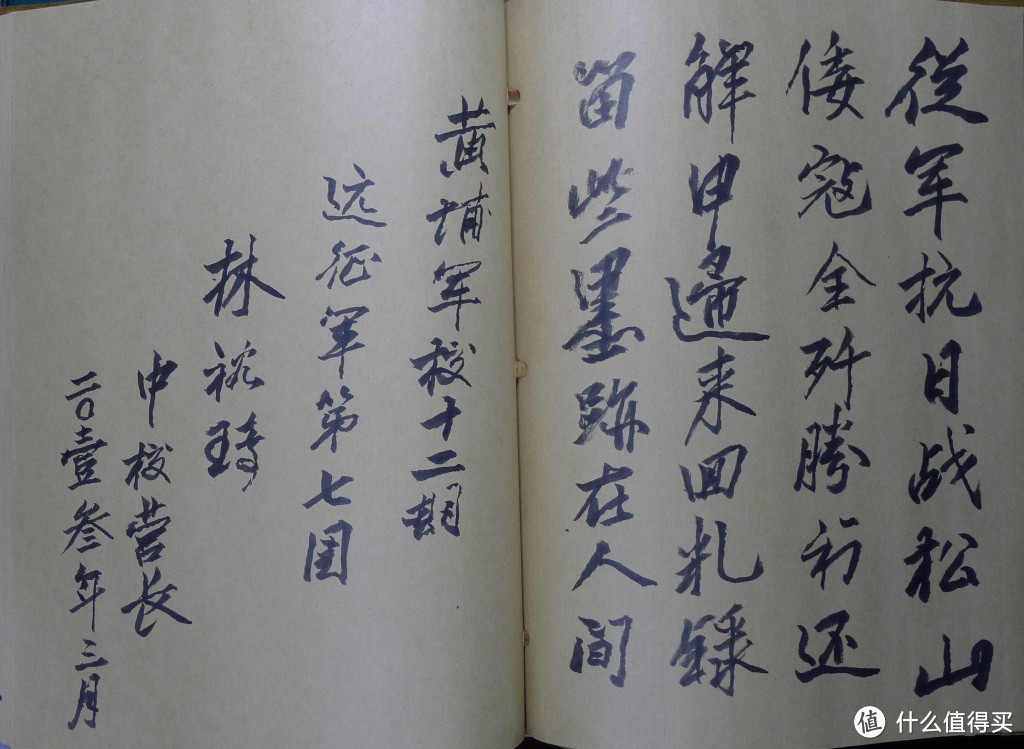 從军抗日战松山
倭寇全歼勝利还
解甲歸来回札録
留些墨跡在人间
黄埔军校十二期
远征军第七团
林裕琦
中校营长
二〇壹叁年三月
值 什么值得买